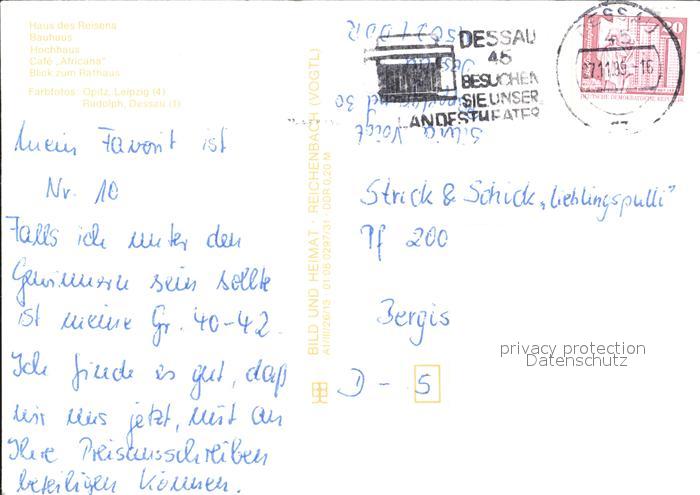 Haus des Reisens
Bauhaus
Hochhaus
Café „Africana"
Blick zum Rathaus
Farbfotos: Opitz, Leipzig (4)
Rudolph, Dessau (1)
Mein Favorit ist
Nr. 10
Falls ich unter den
Gewinnern sein sollte
ist meine Gr. 40-42.
Ich finde es gut, daß
wir uns jetzt, mit an
Ihre Preisausschreiben
beteiligen können.
BILD UND HEIMAT REICHENBACH (VOGTL)
A1/III/26/13 01 08 0297/31 DDR 0,20 M
Silvia Voigt
30
Dessau
DDR
DESSAU
45
BESUCHEN
SIE UNSER
LANDESTHEATER
DESSAU
45
27.11.89-16
DEUTSCHE DEMOKRATISCHE REPUBLIK
Strick & Schick „Lieblingspulli"
Pf 200
Bergis
D - 5
privacy protection
Datenschutz